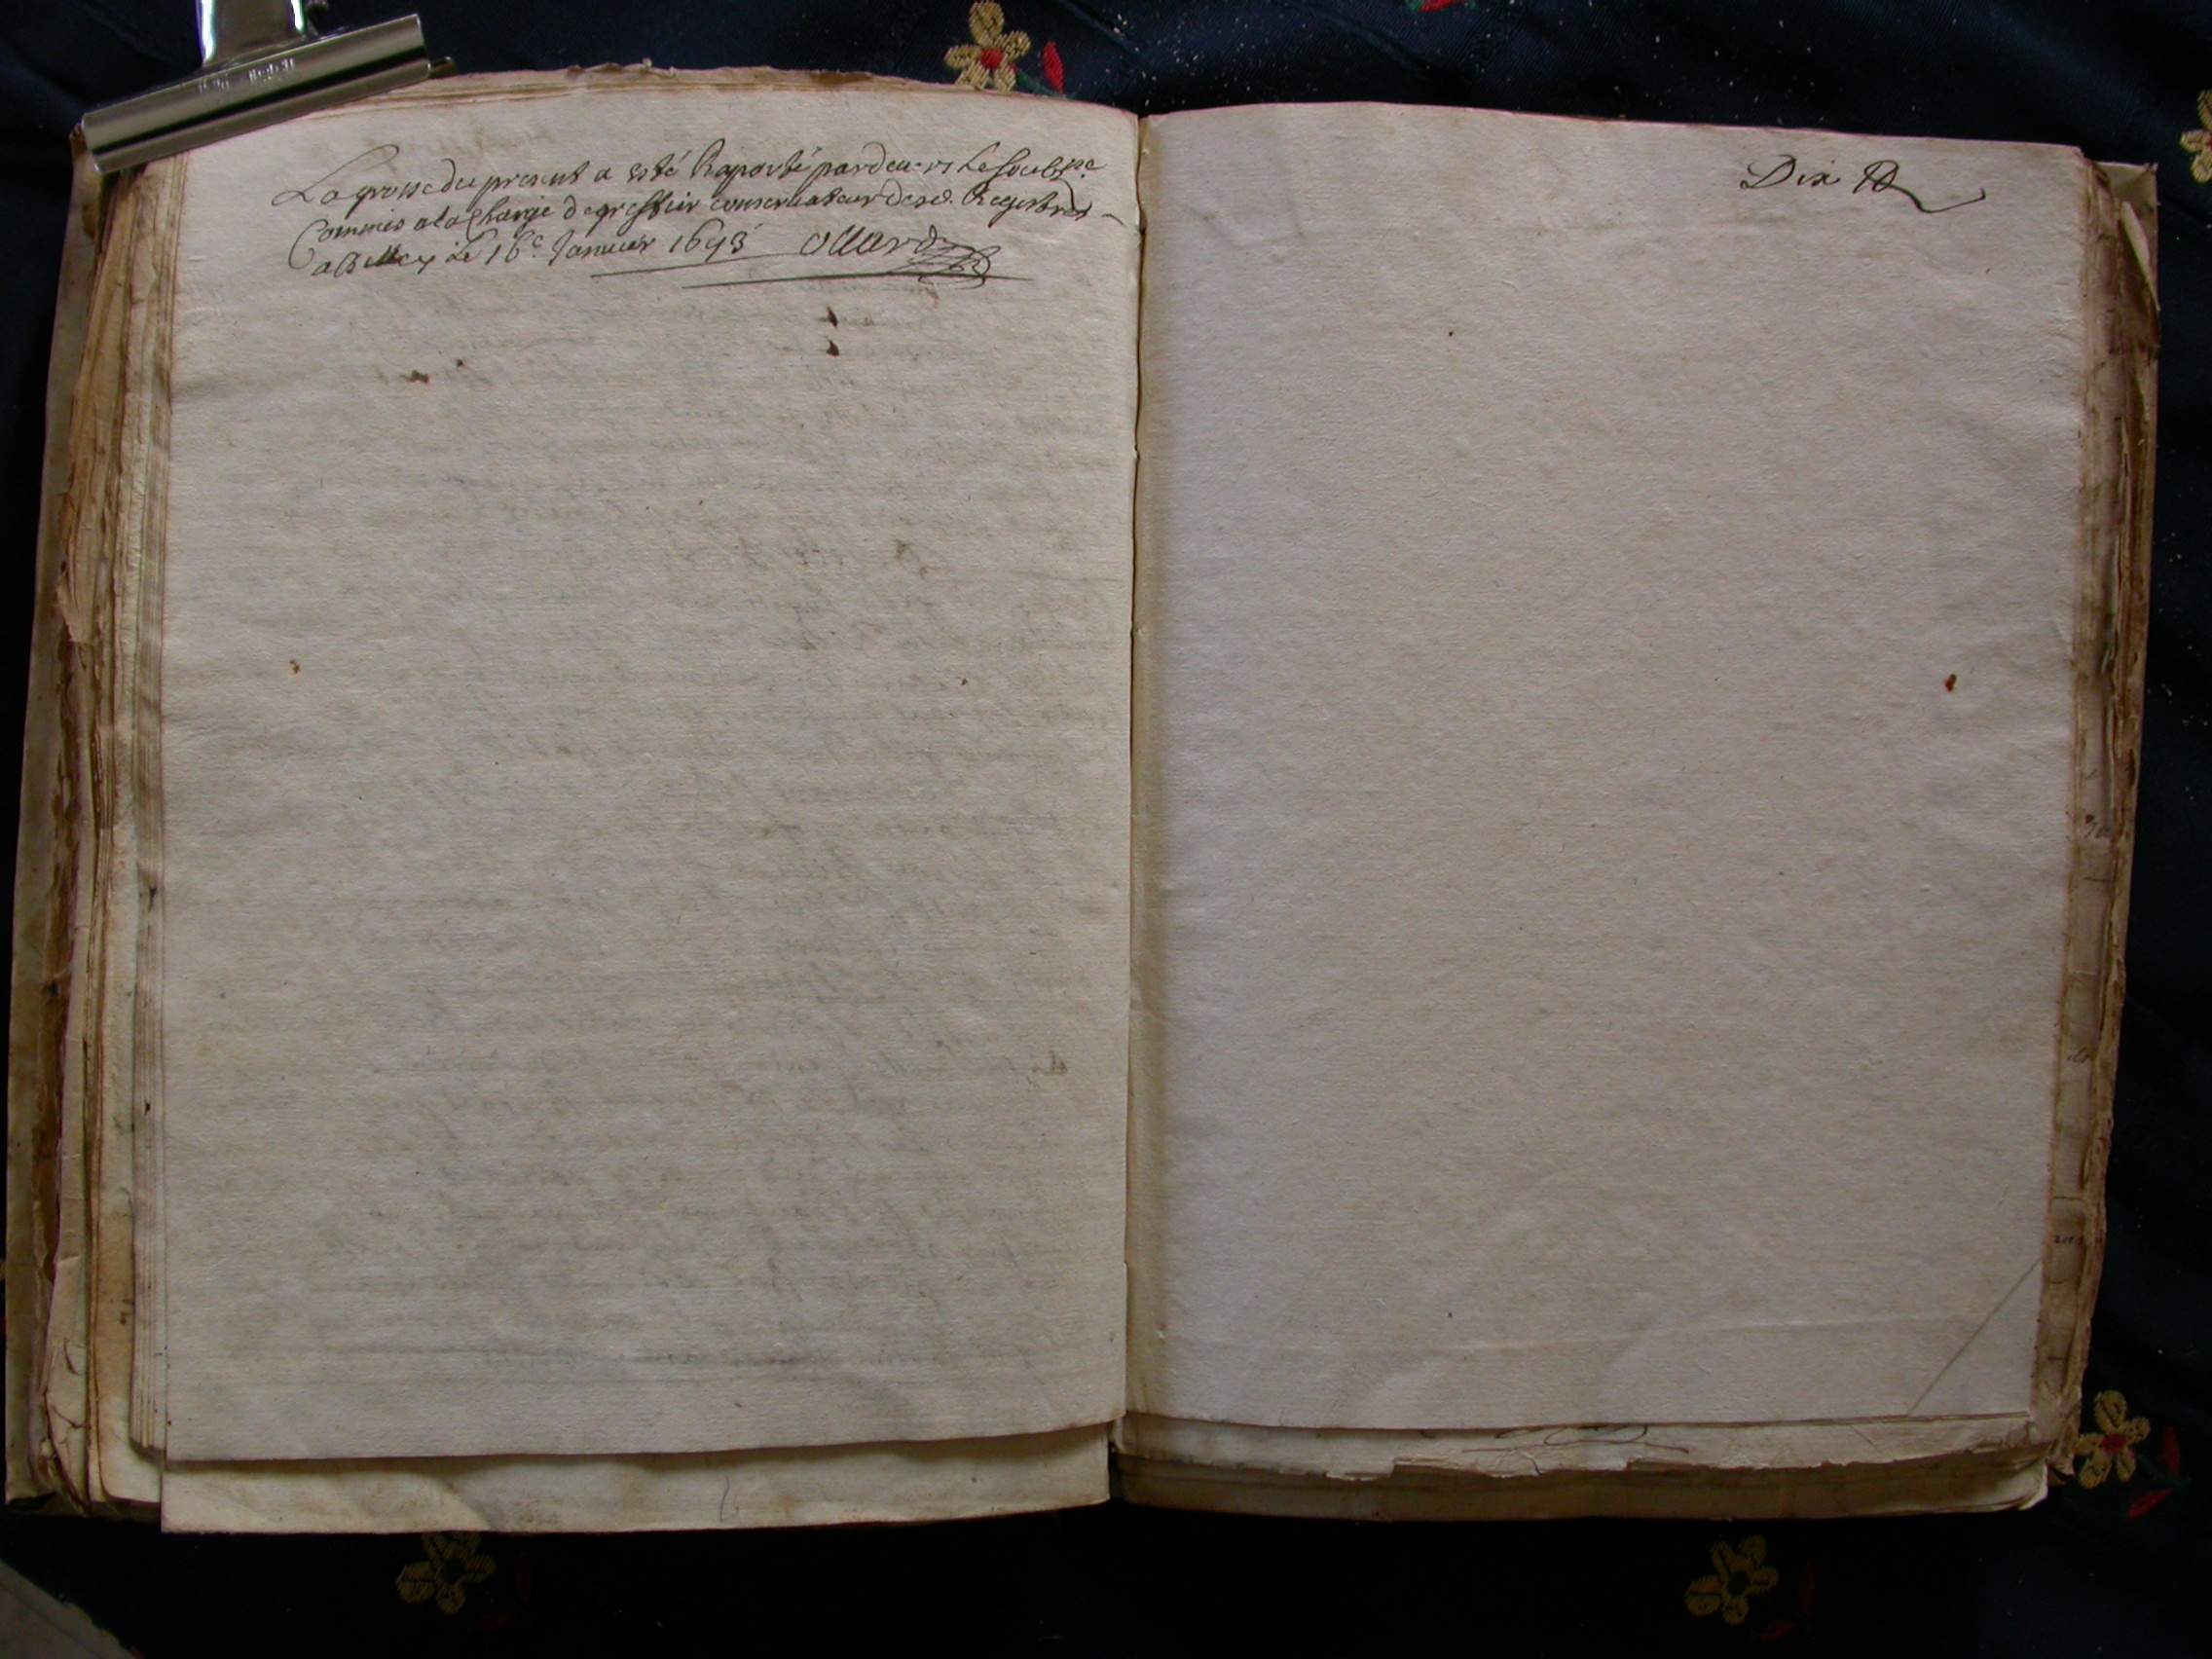 La grosse du present a esté Raporté pardevers le soubsne
Commis a la Charge de greffier conservateur desd. Registres
a Bellay Le 16e Januier 1693
Dix